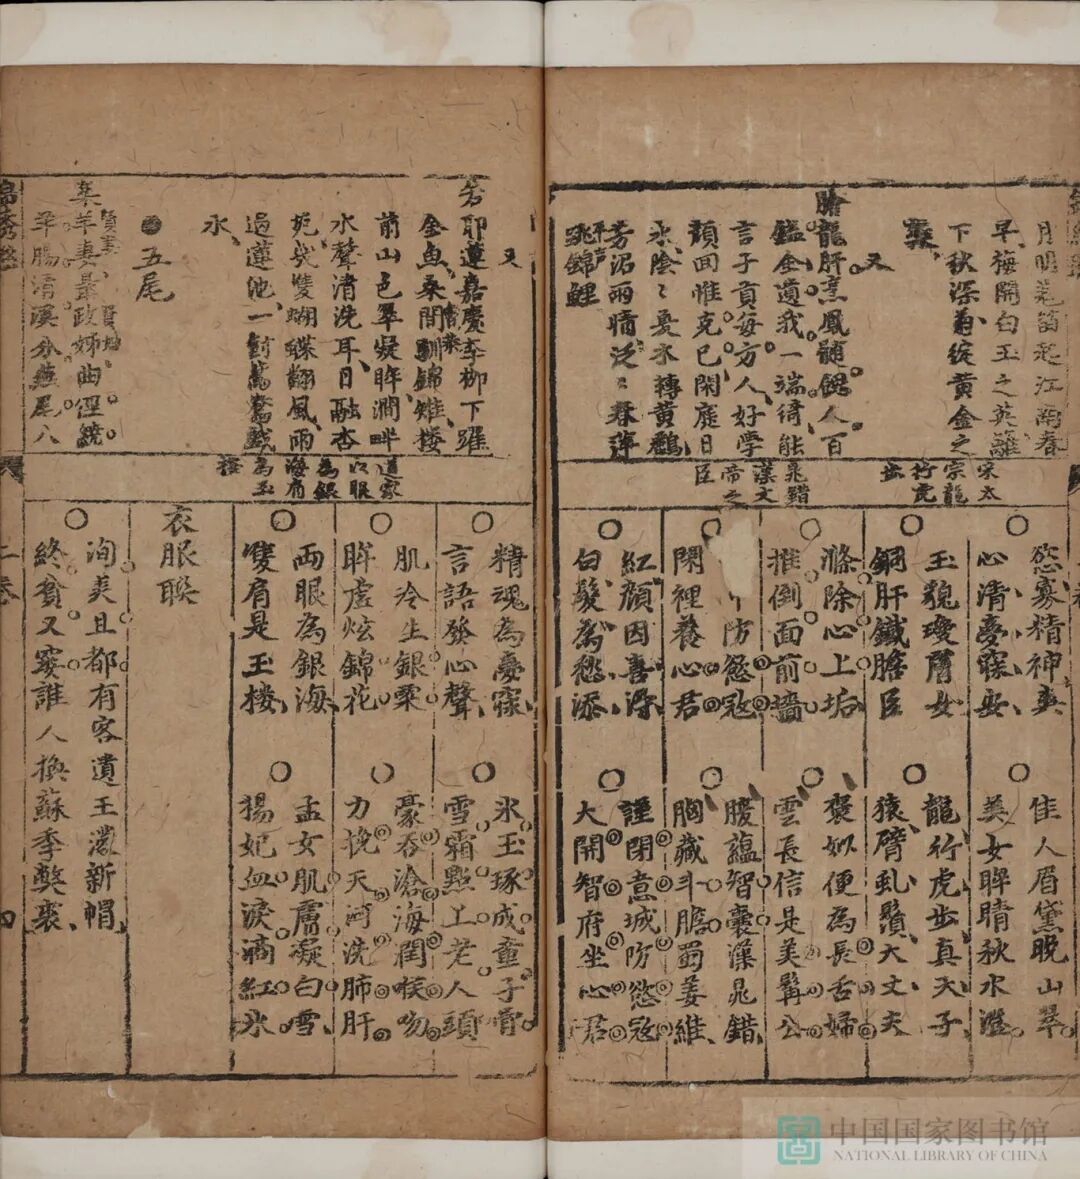 月明羌笛起江南春
早、梅開白玉之英、籬
下秋深、菊綻黃金之
蘂、
又
膾龍肝烹鳳髓、餽人百
鎰金遺我一端綺、能
言子貢每方人、好學
顏回惟克己、閑庭日
永、陰〻憂木轉黃鸝、
芳沼雨晴、泛〻春萍
跳錦鯉
宋太
宗龍
行虎
步
晁錯
漢文
帝之
臣
慾寡精神爽、
心清夢寐安、
玉貌瓊膚女
銅肝鐵膽臣
滌除心上垢
推倒面前墻
防慾冦
閑裡養心君
紅顏因喜
白髮為愁添、
佳人眉黛晚山翠
美女眸睛秋水瀅
龍行虎步真天子
猿臂虬鬚大丈夫
褒姒便為長舌婦
雲長信是美髯公
腹蘊智囊漢晁錯
胸藏斗膽蜀姜維
謹閉意城防慾冦
大開智府坐心君
又
若耶蓮嘉慶李、柳下躍
金魚、桑間馴錦雉、樓
前山色翠凝眸、澗畔
水聲清洗耳、日融杏
苑、幾雙蝴蝶翻風、雨
過蓮池、一對鴛鴦戲
水、
五尾
棄羊妻聶政姊曲徑繞
羊腸清溪分燕尾八
道家
以眼
為銀
海肩
為玉
樓
精魂為夢寐、
言語發心聲、
肌冷生銀粟
眸虛炫錦花
兩眼為銀海、
雙肩是玉樓、
衣服聯
洵美且都有客遺王濛新帽
終貧又窶誰人換蘇季獘裘、
氷玉琢成童子骨
雪霜點上老人頭
豪吞滄海潤喉吻
力挽天河洗肺肝
孟女肌膚凝白雪
楊妃血淚滴紅氷
二卷
四